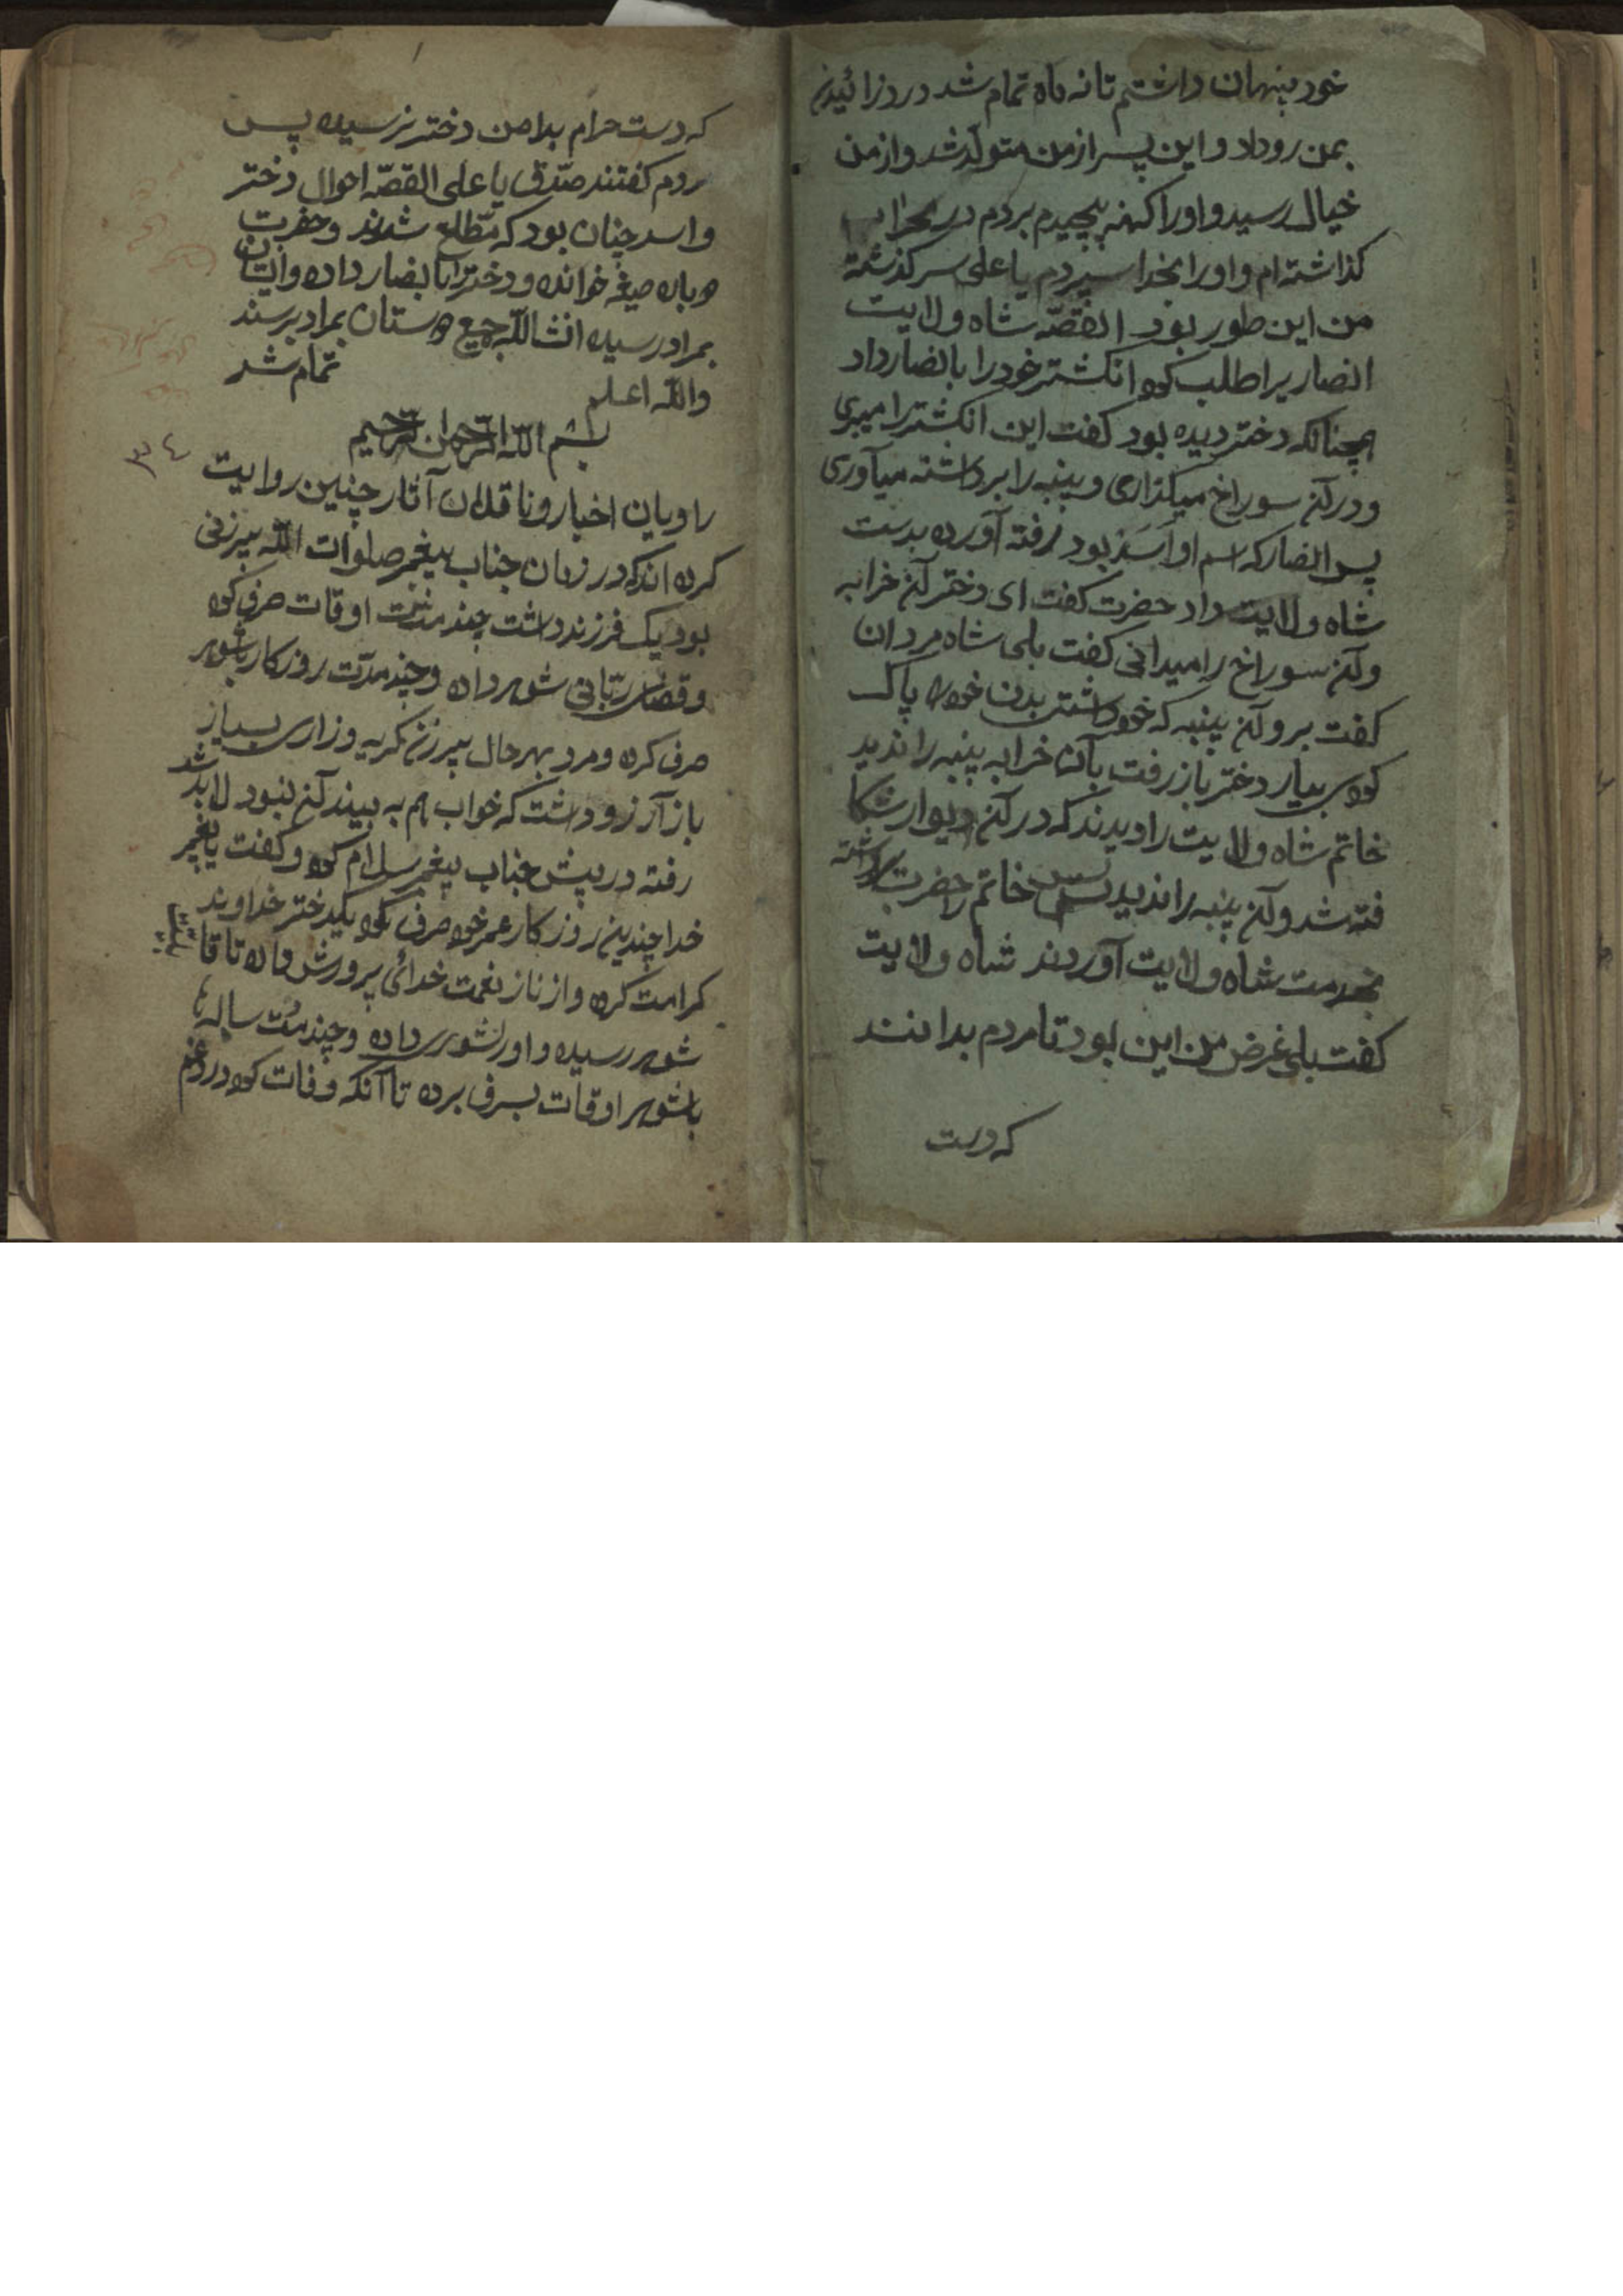 خود پنهان داشتم تا نه ماه تمام شد درد زائیدن
بمن روداد و این پسر از من متولد شد و از من
خیال رسید و او را کهنه پیچیدم بردم در
کذاشته ام و او را بخدا سپردم یا علی سرکذشته
من این طور بود القصّه شاه ولایت
انصاریرا طلب کرده انکشتر خود را بانصار داد
همچنانکه دختر دیده بود کفت این انکشتر را میبری
و در آن سوراخ میکذاری و پنبه را برداشته میآوری
پس انصار که اسم او اسد بود رفته آورده بدست
شاه ولایت داد حضرت کفت ای دختر آن خرابه
و آن سوراخ را میدانی کفت بلی شاه مردان
کفت برو آن پنبه که خود بدن خود را پاک
کرده بیار دختر باز رفت بآن خرابه پنبه را ندید
خاتم شاه ولایت را دیدند که در آن دیوار شکا
فته شد و آن پنبه را ندید پس خاتم حضرت را برداشته
بخدمت شاه ولایت آوردند شاه ولایت
کفت بلی غرض من این بود تا مردم بدانند
که دست
که دست حرام بدامن دختر نرسیده پس
مردم کفتند صدّق یا علی القصّه احوال دختر
و اسد چنان بود که مطّلع شدند و حضرت
دوباره صیغه خوانده و دختر را بانصار داده و ایشان
بمراد رسیده انشالله جمیع دوستان بمراد برسند
والله اعلم تمام شد
بسم الله الرحمن الرحیم
٣٤
راویان اخبار و ناقلان آثار چنین روایت
کرده اند که در زمان جناب پیغمبر صلوات الله پیرزنی
بود یک فرزند داشت چند مدّت اوقات صرف کرده
و قضای ربّانی شوهر داده و چند مدّت روزکار باشوهر
صرف کرده و مرد بهر حال پیرزن کریه و زاری بسیار
باز آرزو داشت که خواب هم به بیند آن نبود لابد شد
رفته در پیش جناب پیغمبر سلام کرده و کفت یا پیغمبر
خدا چندین روزکار عمر خود صرف کرده یکدختر خداوند
کرامت کرده و از ناز نعمت خدائی پرورش داده تا قا
شوهر رسیده و او را بشوهر داده و چند مدّت ساله با
باشوهر اوقات بسرف برده تا آنکه وفات کرده درد غم